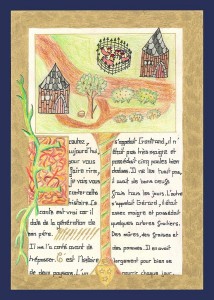 Ecoutez,
aujourd'hui,
pour vous
faire rire,
je vais vous
conter cette
histoire. Le
conte est vrai car il
date de la génération de
son père.
Il me l'a conté avant de
trépasser. C'est l'histoire
de deux paysans. L'un
s'appelait
était pas très maigre et
possédait cinq poules bien
dodues. Il ne les tuait pas,
il avait de bons oeufs
frais tous les jours. L'autre
s'appelait Gérard, il était
assez maigre et possédait
quelques arbres fruitiers.
Des mûres, des groises et
des pommes. Il en avait
largement pour bien se
nourrir chaque jour.